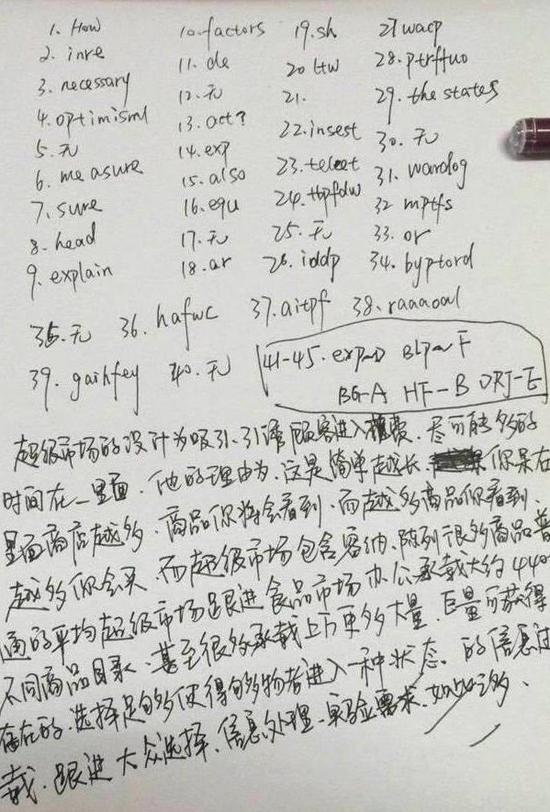 1. How
2. inre
3. necessary
4. optimisml
5. 无
6. measure
7. sure
8. head
9. explain
10. factors
11. de
12. 无
13. act?
14. exp
15. also
16. equ
17. 无
18. ar
19. sh
20 ltw
21.
22. insest
23. teleet
24. tbpfdw
25. 无
26. iddp
27 wacp
28. ptrffuo
29. the states
30. 无
31. wardog
32 mptfs
33. or
34. byptord
35. 无 36. hafwc 37. aitpf 38. raaaoal
39. gaihfey 40. 无
41-45. exp-D BLP-F
BG-A HF-B DRJ-E
超级市场的设计为吸引、引诱顾客进入 尽可能多的
时间在一里面. 他的理由为. 这是简单越长 你呆在
里面商店越多. 商品你将会看到. 而越多商品你看到.
越多你会买. 而超级市场包含容纳、陈列很多商品普
通的平均超级市场跟进食品市场办公承载大约440
不同商品目录. 甚至很多承载上万更多大量. 巨量可获得
存在的. 选择足够使得 物者进入一种状态. 的信息过
载. 跟进大众选择. 信息处理. 实验要求. 如此之多.